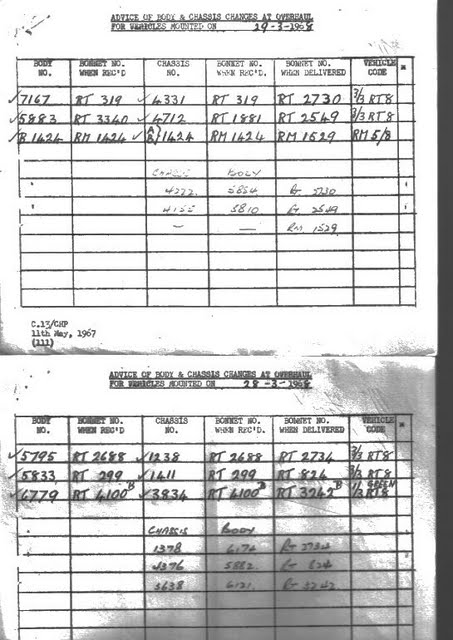 ADVICE OF BODY & CHASSIS CHANGES AT OVERHAUL
FOR VEHICLES MOUNTED ON 29-3-1968
BODY NO. BONNET NO. WHEN REC'D CHASSIS NO. BONNET NO. WHEN REC'D. BONNET NO. WHEN DELIVERED VEHICLE CODE *
✓7167 RT 319 ✓4331 RT 319 RT 2730 3/3 RT8
✓5883 RT 3340 ✓4712 RT 1881 RT 2549 3/3 RT8
✓B 1424 RM 1424 ✓A B} 1424 RM 1424 RM 1529 RM 5/8
CHASSIS BODY
4222 5654 Rt 2730
4155 5810 Rt 2549
— — RM 1529
C.13/CMP
11th May, 1967
(111)
ADVICE OF BODY & CHASSIS CHANGES AT OVERHAUL
FOR VEHICLES MOUNTED ON 28-3-1968
BODY NO. BONNET NO. WHEN REC'D CHASSIS NO. BONNET NO. WHEN REC'D. BONNET NO. WHEN DELIVERED VEHICLE CODE *
✓5795 RT 2688 ✓1238 RT 2688 RT 2734 3/3 RT8
✓5833 RT 299 ✓1411 RT 299 RT 824 3/3 RT8
✓6779 RT 4100B ✓3834 RT 4100B RT 3242B 11 GREEN /3 RT8
CHASSIS BODY
1378 6174 Rt 2734
4376 5882 Rt 824
3638 6121 Rt 3242